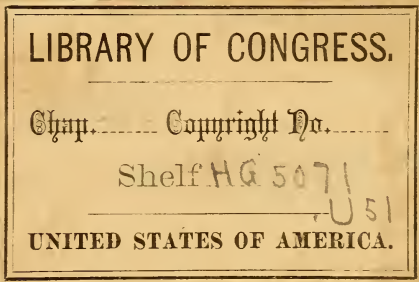 LIBRARY OF CONGRESS.
Chap........ Copyright No........
Shelf HG 5071
.U51
UNITED STATES OF AMERICA.